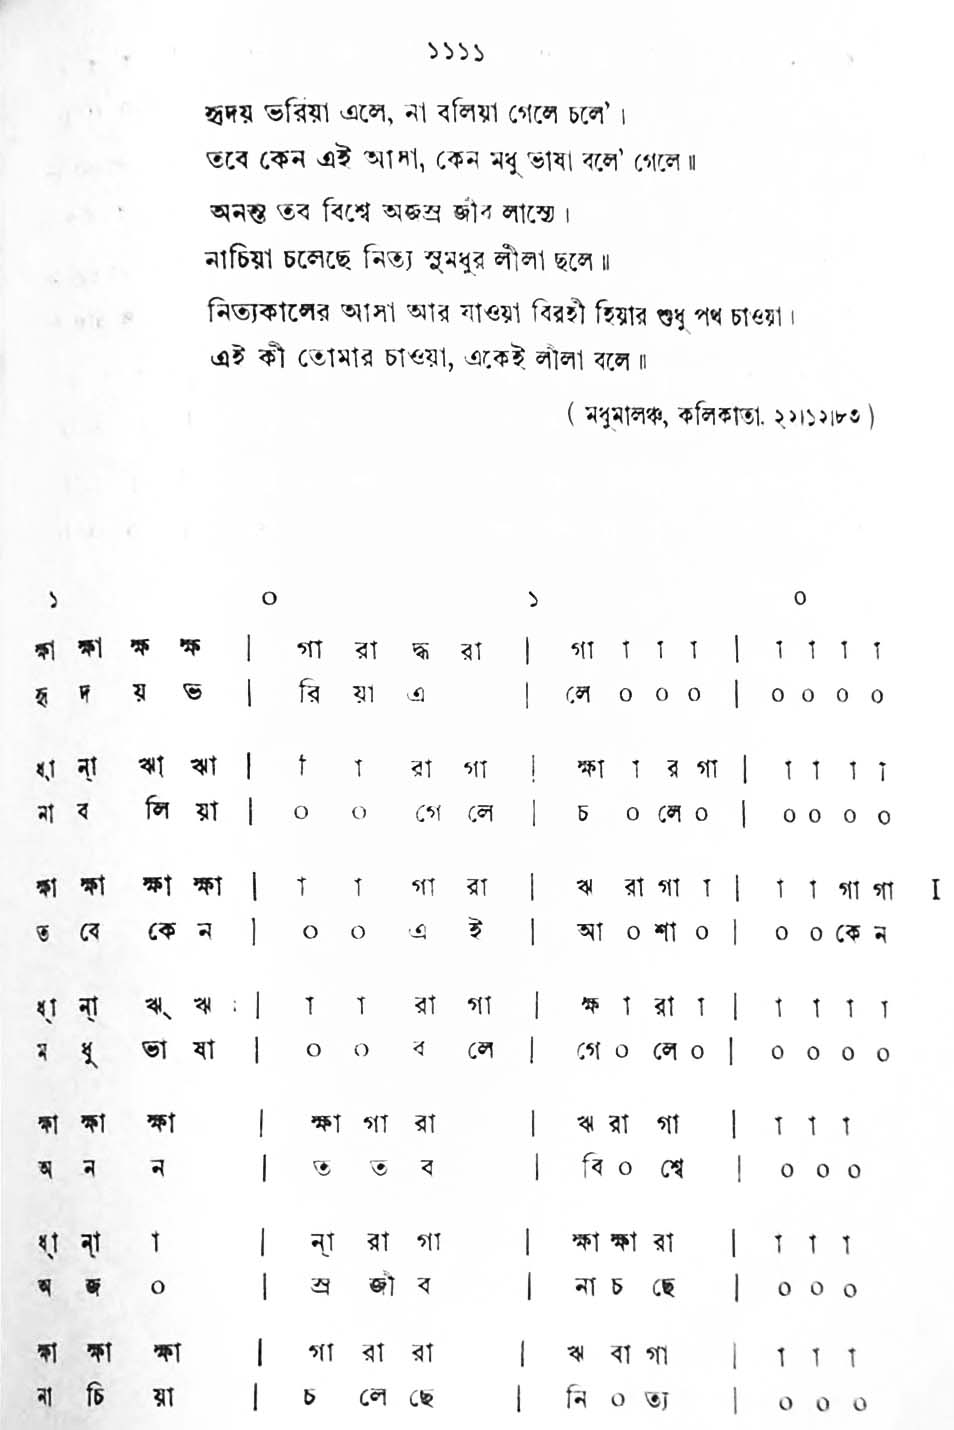 ১১১১
হৃদয় ভরিয়া এলে, না বলিয়া গেলে চলে' ।
তবে কেন এই আসা, কেন মধু ভাষা বলে' গেলে ॥
অনন্ত তব বিশ্বে অজস্র জীব লাস্যে ।
নাচিয়া চলেছে নিত্য সুমধুর লীলা ছলে ॥
নিত্যকালের আসা আর যাওয়া বিরহী হিয়ার শুধু পথ চাওয়া ।
এই কী তোমার চাওয়া, একেই লীলা বলে ॥
( মধুমালঞ্চ, কলিকাতা. ২২।১২।৮৩ )
১ ০ ১ ০
ক্ষা ক্ষা ক্ষ ক্ষ | গা রা দ্ধ রা | গা া া া | া া া া
হৃ দ য় ভ | রি য়া এ | লে ০ ০ ০ | ০ ০ ০ ০
ধ্া ন্া ঋা ঋা | া া রা গা | ক্ষা া র গা | া া া া
না ব লি য়া | ০ ০ গে লে | চ ০ লে ০ | ০ ০ ০ ০
ক্ষা ক্ষা ক্ষা ক্ষা | া া গা রা | ঋ রা গা া | া া গা গা I
ত বে কে ন | ০ ০ এ ই | আ ০ শা ০ | ০ ০ কে ন
ধ্া ন্া ঋ্ ঋ : | া া রা গা | ক্ষ া রা া | া া া া
ম ধু ভা ষা | ০ ০ ব লে | গে ০ লে ০ | ০ ০ ০ ০
ক্ষা ক্ষা ক্ষা | ক্ষা গা রা | ঋ রা গা | া া া
অ ন ন | ত ত ব | বি ০ শ্বে | ০ ০ ০
ধ্া ন্া া | ন্া রা গা | ক্ষা ক্ষা রা | া া া
অ জ ০ | স্র জী ব | না চ ছে | ০ ০ ০
ক্ষা ক্ষা ক্ষা | গা রা রা | ঋ বা গা | া া া
না চি য়া | চ লে ছে | নি ০ ত্য | ০ ০ ০